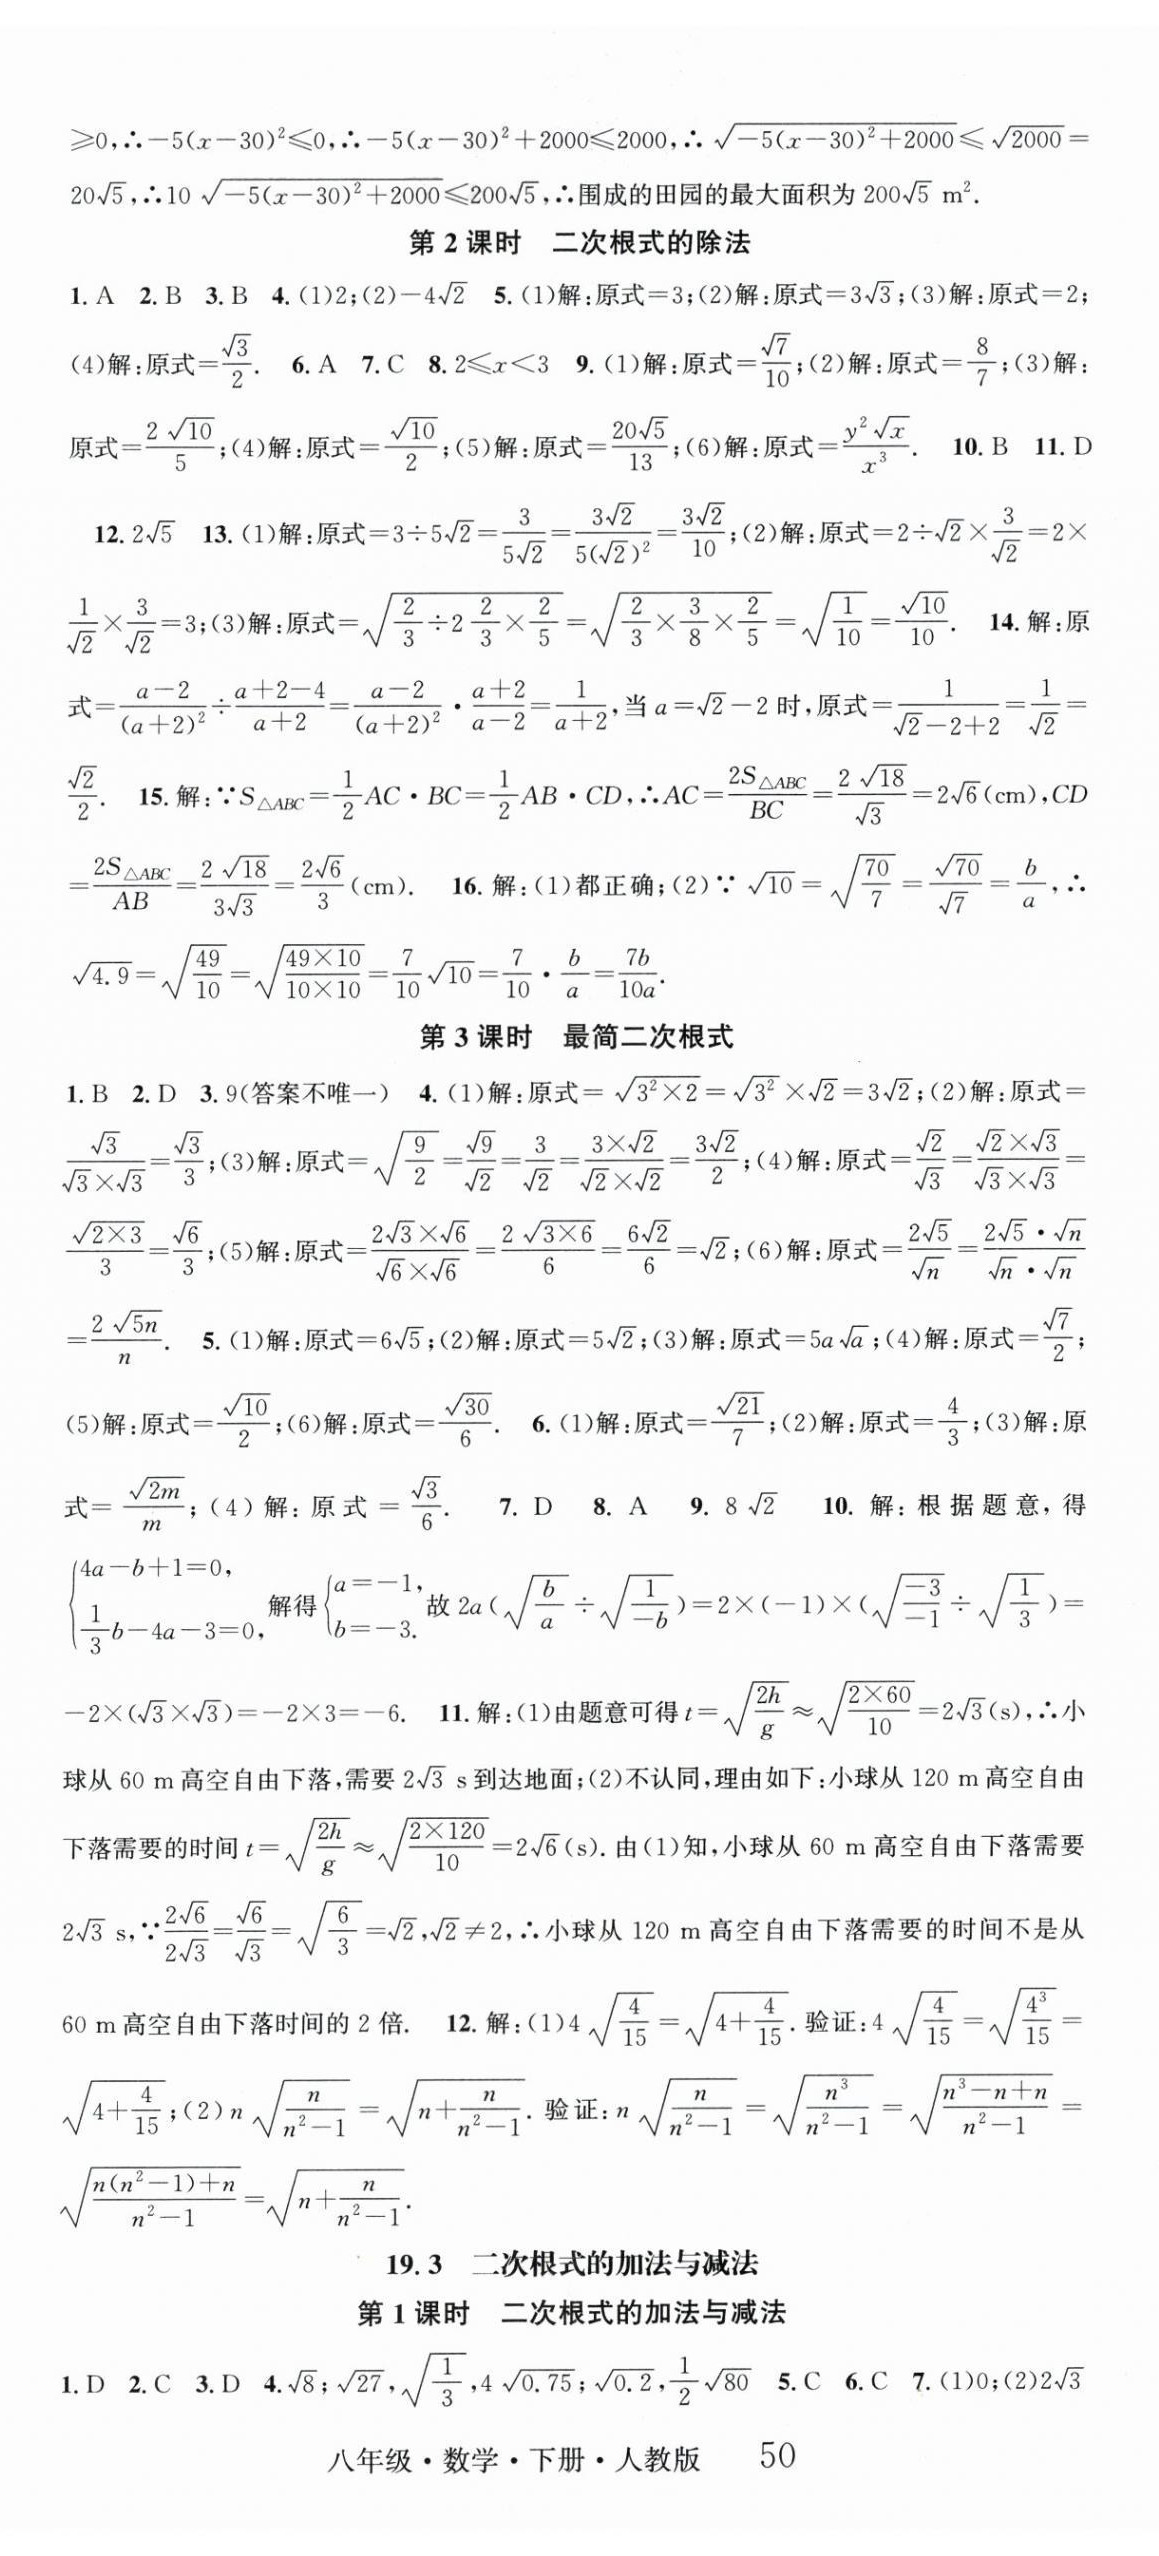 ≥0,∴-5(x-30)²≤0,∴-5(x-30)²+2000≤2000,∴√(-5(x-30)²+2000)≤√2000=
20√5,∴10√(-5(x-30)²+2000)≤200√5,∴围成的田园的最大面积为200√5 m².
第2课时 二次根式的除法
1. A 2. B 3. B 4. (1)2;(2)-4√2 5. (1)解:原式=3;(2)解:原式=3√3;(3)解:原式=2;
(4)解:原式=√3/2. 6. A 7. C 8. 2≤x<3 9. (1)解:原式=√7/10;(2)解:原式=8/7;(3)解:
原式=2√10/5;(4)解:原式=√10/2;(5)解:原式=20√5/13;(6)解:原式=y²√x/x³. 10. B 11. D
12. 2√5 13. (1)解:原式=3÷5√2=3/(5√2)=3√2/(5(√2)²)=3√2/10;(2)解:原式=2÷√2×3/√2=2×
1/√2×3/√2=3;(3)解:原式=√(2/3÷2 2/3×2/5)=√(2/3×3/8×2/5)=√(1/10)=√10/10. 14. 解:原
式=(a-2)/(a+2)²÷(a+2-4)/(a+2)=(a-2)/(a+2)²·(a+2)/(a-2)=1/(a+2),当a=√2-2时,原式=1/(√2-2+2)=1/√2=
√2/2. 15. 解:∵S△ABC=1/2AC·BC=1/2AB·CD,∴AC=2S△ABC/BC=2√18/√3=2√6(cm),CD
=2S△ABC/AB=2√18/(3√3)=2√6/3(cm). 16. 解:(1)都正确;(2)∵√10=√(70/7)=√70/√7=b/a,∴
√4.9=√(49/10)=√((49×10)/(10×10))=7/10√10=7/10·b/a=7b/10a.
第3课时 最简二次根式
1. B 2. D 3. 9(答案不唯一) 4. (1)解:原式=√(3²×2)=√3²×√2=3√2;(2)解:原式=
√3/(√3×√3)=√3/3;(3)解:原式=√(9/2)=√9/√2=3/√2=(3×√2)/(√2×√2)=3√2/2;(4)解:原式=√2/√3=(√2×√3)/(√3×√3)=
√(2×3)/3=√6/3;(5)解:原式=(2√3×√6)/(√6×√6)=2√(3×6)/6=6√2/6=√2;(6)解:原式=2√5/√n=(2√5·√n)/(√n·√n)
=2√(5n)/n. 5. (1)解:原式=6√5;(2)解:原式=5√2;(3)解:原式=5a√a;(4)解:原式=√7/2;
(5)解:原式=√10/2;(6)解:原式=√30/6. 6. (1)解:原式=√21/7;(2)解:原式=4/3;(3)解:原
式=√(2m)/m;(4)解:原式=√3/6. 7. D 8. A 9. 8√2 10. 解:根据题意,得
{4a-b+1=0, 1/3b-4a-3=0, 解得{a=-1, b=-3. 故2a(√(b/a)÷√(1/-b))=2×(-1)×(√(-3/-1)÷√(1/3))=
-2×(√3×√3)=-2×3=-6. 11. 解:(1)由题意可得t=√(2h/g)≈√((2×60)/10)=2√3(s),∴小
球从60 m高空自由下落,需要2√3 s到达地面;(2)不认同,理由如下:小球从120 m高空自由
下落需要的时间t=√(2h/g)≈√((2×120)/10)=2√6(s).由(1)知,小球从60 m高空自由下落需要
2√3 s,∵2√6/(2√3)=√6/√3=√(6/3)=√2,√2≠2,∴小球从120 m高空自由下落需要的时间不是从
60 m高空自由下落时间的2倍. 12. 解:(1)4√(4/15)=√(4+4/15).验证:4√(4/15)=√(4³/15)=
√(4+4/15);(2)n√(n/(n²-1))=√(n+n/(n²-1)).验证:n√(n/(n²-1))=√(n³/(n²-1))=√((n³-n+n)/(n²-1))=
√((n(n²-1)+n)/(n²-1))=√(n+n/(n²-1)).
19.3 二次根式的加法与减法
第1课时 二次根式的加法与减法
1. D 2. C 3. D 4. √8;√27,√(1/3),4√0.75;√0.2,1/2√80 5. C 6. C 7. (1)0;(2)2√3
八年级·数学·下册·人教版 50